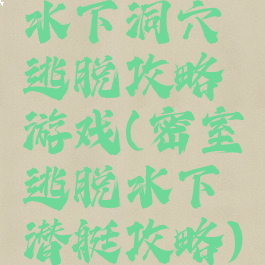 水下洞穴
逃脱攻略
游戏(密室
逃脱水下
潜艇攻略)